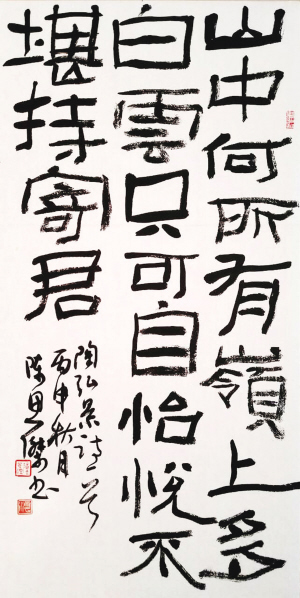 山中何所有嶺上多
白雲只可自怡悅不
堪持寄君
陶弘景诗一首
丙申秋月
陈傑书